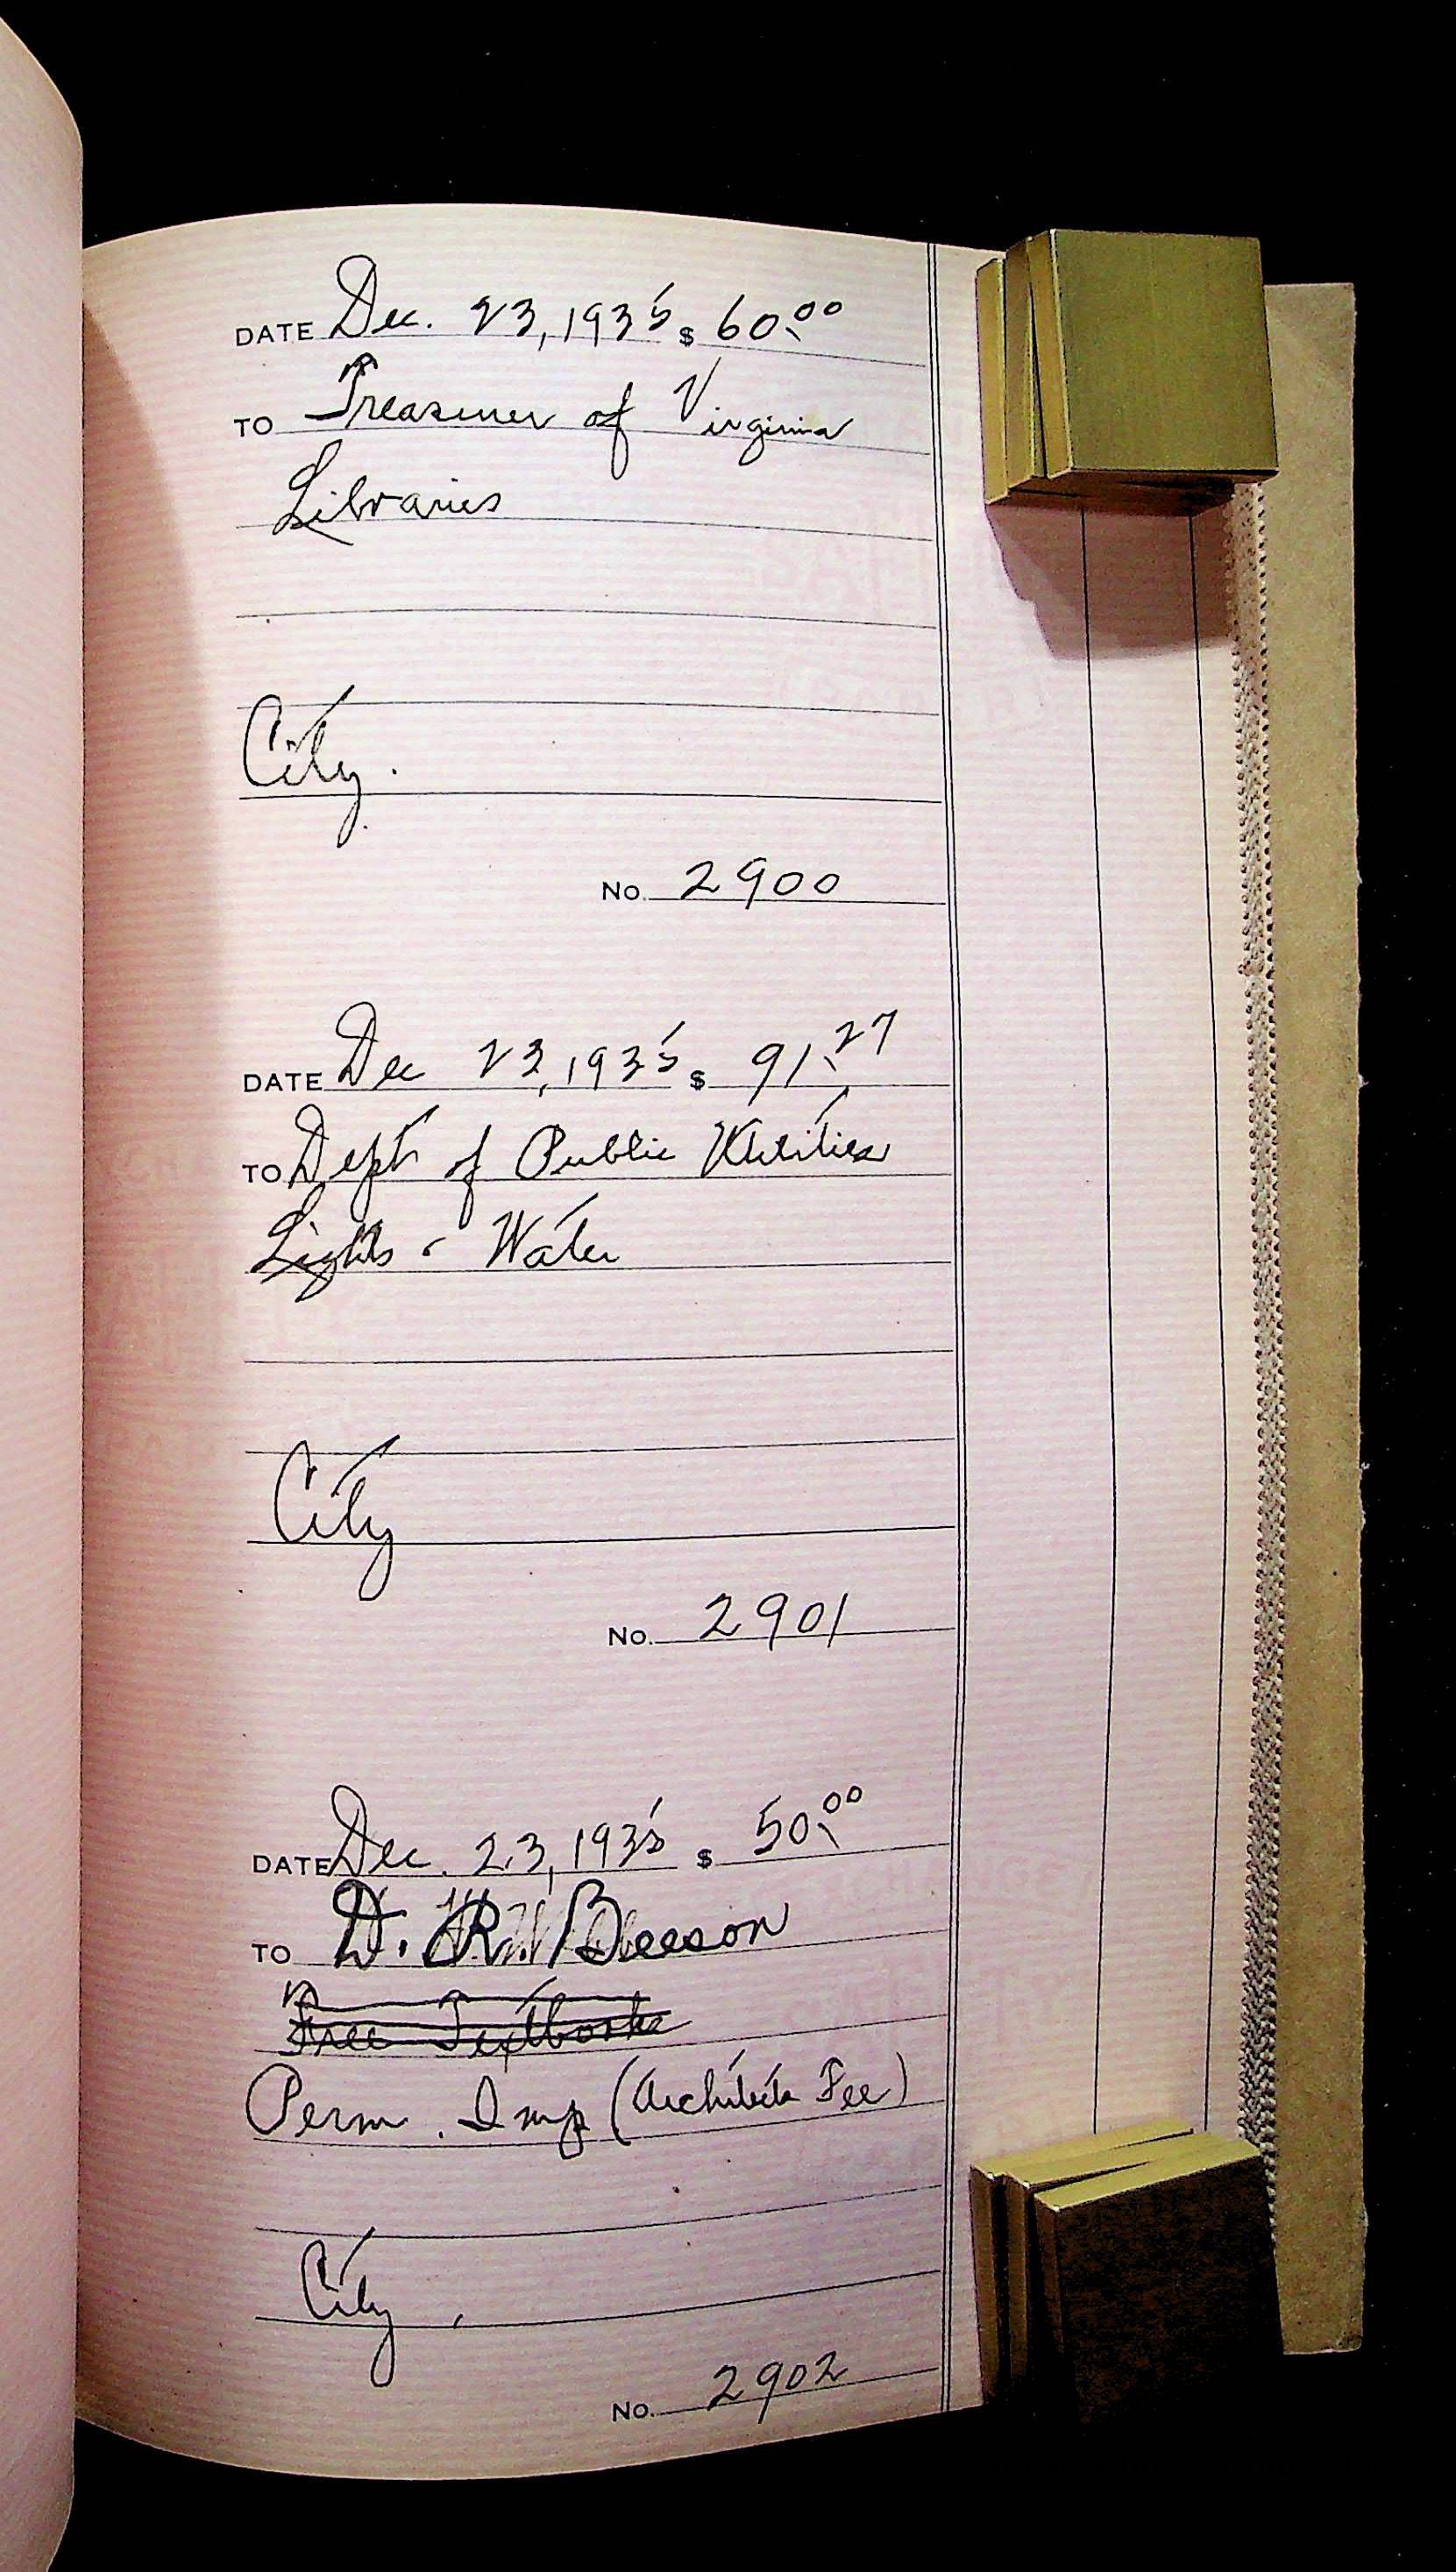 DATE Dec. 23, 1935 $ 60.00
TO Treasurer of Virginia
Libraries
City.
No. 2900
DATE Dec 23, 1935 $ 91.27
TO Dept of Public Utilities
Lights & Water
City
No. 2901
DATE Dec. 23, 1935 $ 50.00
TO D. R. Beeson
Free Textbooks
Perm. Imp (Architects Fee)
City
No. 2902